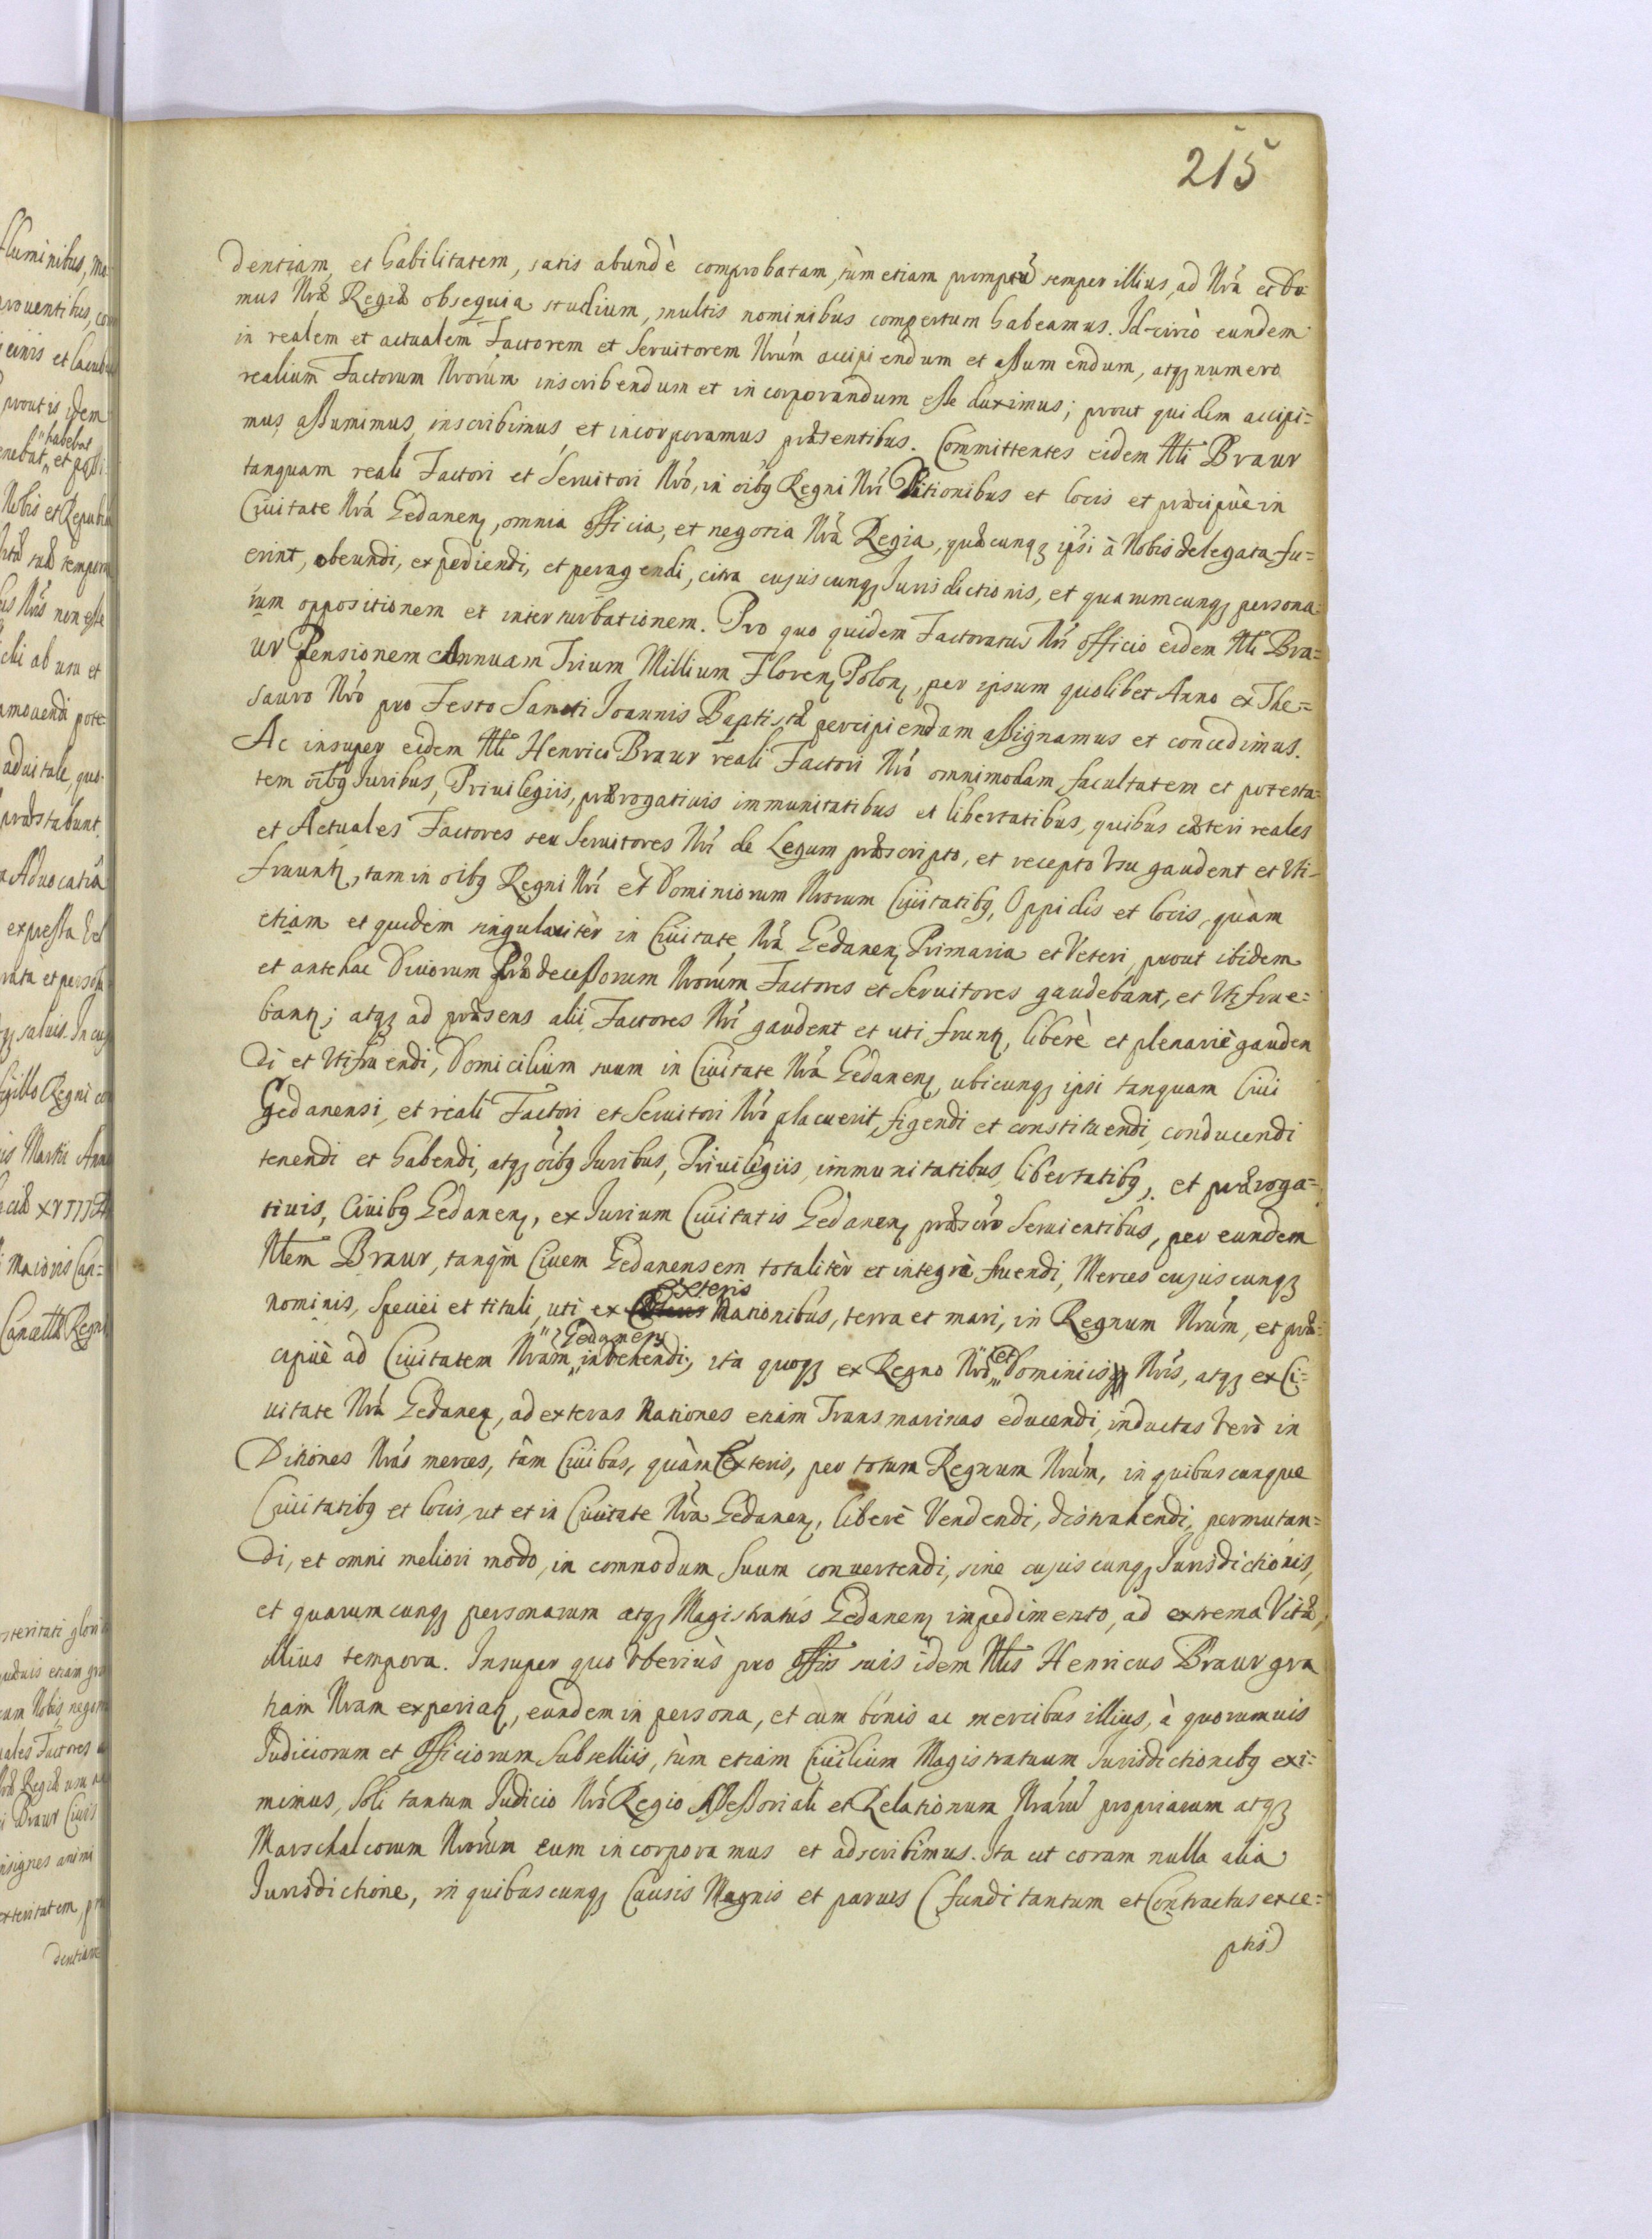 215
dentiam, et habilitatem, satis abundè comprobatam, tùm etiam promptũ semper illius, ad Nrã et Do
mus Nræ Regiæ obsequia studium, multis nominibus compertum habeamus. Id-circò eundem
in realem et actualem Factorem et Servitorem Nrũm accipiendum et assumendum, atqȝ numero
realium Factorum Nrorũm inscribendum et incorporandum esse duximus; prout quidem accipi=
mus assumimus, inscribimus, et incorporamus præsentibus. Committentes eidem Nli Braur
tanquam reali Factori et Servitori Nrõ, in oibȝ Regni Nri Ditionibus et locis et præcipuè in
Ciuitate Nrã Gedanenȝ, omnia officia, et negotia Nrã Regia, quæcunqȝ ipsi à Nobis delegata fu=
erint, obeundi, expediendi, et peragendi, citra cujuscunqȝ Jurisdictionis, et quarumcunqȝ persona=
rum oppositionem et interturbationem. Pro quo quidem Factoratus Nri officio eidem Nli Bra=
ur Pensionem Annuam Trium Millium Florenȝ Polonȝ, per ipsum quolibet Anno ex The=
sauro Nrõ pro Festo Sancti Joannis Baptistæ percipiendam assignamus et concedimus.
Ac insuper eidem Nli Henrico Braur reali Factori Nrõ omnimodam facultatem et potesta=
tem oibȝ Juribus, Priuilegiis, prærogatiuis immunitatibus et libertatibus, quibus cæteri reales
et Actuales Factores seu Seruitores Nri de Legum præscripto, et recepto Usu gaudent et Uti-
fruuntȝ, tam in oibȝ Regni Nri et Dominiorum Nrorum Ciuitatibȝ, Oppidis et locis, quàm
etiam et quidem singularitèr in Ciuitate Nrã Gedanenȝ Primaria et Veteri, prout ibidem
et antehac Diuorum Prædecessorum Nrorũm Factores et Seruitores gaudebant, et Uti frue=
bantȝ; atqȝ ad præsens alii Factores Nri gaudent et uti fruuntȝ, liberè et plenariè gauden
di et Utifruendi, Domicilium suum in Ciuitate Nrã Gedanenȝ, ubicunqȝ ipsi tanquam Ciui
Gedanensi, et reali Factori et Seruitori Nrõ placuerit, figendi et constituendi, conducendi
tenendi et habendi, atqȝ oibȝ Juribus, Priuilegiis, immunitatibus, libertatibȝ, et præroga=
tiuis, Ciuibȝ Gedanenȝ, ex Jurium Ciuitatis Gedanenȝ præscrõ Seruientibus, per eundem
Nlem Braur, tanqm̃ Ciuem Gedanensem totalitèr et integrè fruendi, Merces cujuscunqȝ
exteris
nominis, speciei et tituli, uti ex Nationibus, terra et mari, in Regnum Nrũm, et præ=
Gedanenȝ
cipuè ad Ciuitatem Nrãm inuehendi, ità quoqȝ ex Regno Nrõ et Dominiis Nris, atqȝ ex Ci=
uitate Nrã Gedanenȝ, ad exteras Nationes etiam Transmarinas educendi, inductas Verò in
Ditiones Nrás merces, tàm Ciuibus, quàm Exteris, per totum Regnum Nrũm, in quibuscunque
Ciuitatibȝ et locis, ut et in Ciuitate Nrã Gedanenȝ, liberè Vendendi, distrahendi, permutan=
di, et omni meliori modo, in commodum Suum conuertendi, sine cujuscunqȝ Jurisdictionis,
et quarumcunqȝ personarum atqȝ Magistratús Gedanenȝ impedimento, ad extrema Vitæ
illius tempora. Insuper quo Uberiùs pro offis suis idem Nlis Henricus Braur gra
tiam Nram experiatȝ, eundem in persona, et cum bonis ac mercibus illius, à quorumuis
Judiciorum et Officiorum Subselliis, tùm etiam Ciuilium Magistratuum Jurisdictionibȝ exi=
mimus, Soli tantum Judicio Nrõ Regio Assessoriali et Relationum Nrarũ propriarum atqȝ
Marschalcorum Nrorũm eum incorporamus et adscribimus. Ita ut coram nulla alia
Jurisdictione, in quibuscunqȝ Causis Magnis et paruis (fundi tantum et Contractus exce=
ptis)